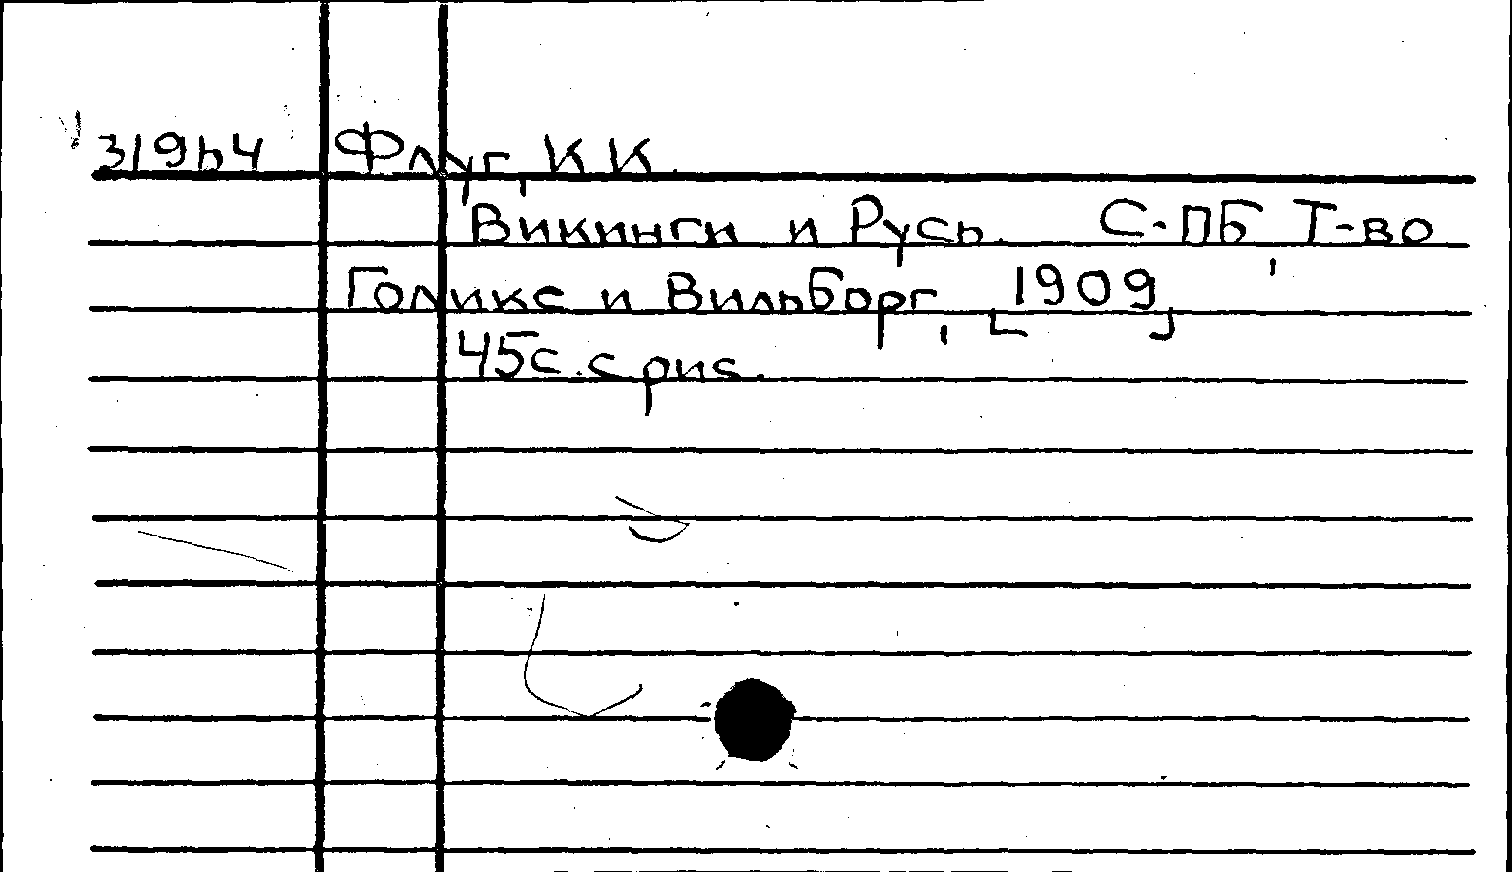 31964 Флуг, К К.
Викинги и Русь. С-ПБ, Т-во
Голике и Вильборг, [1909]
45с. с рис.